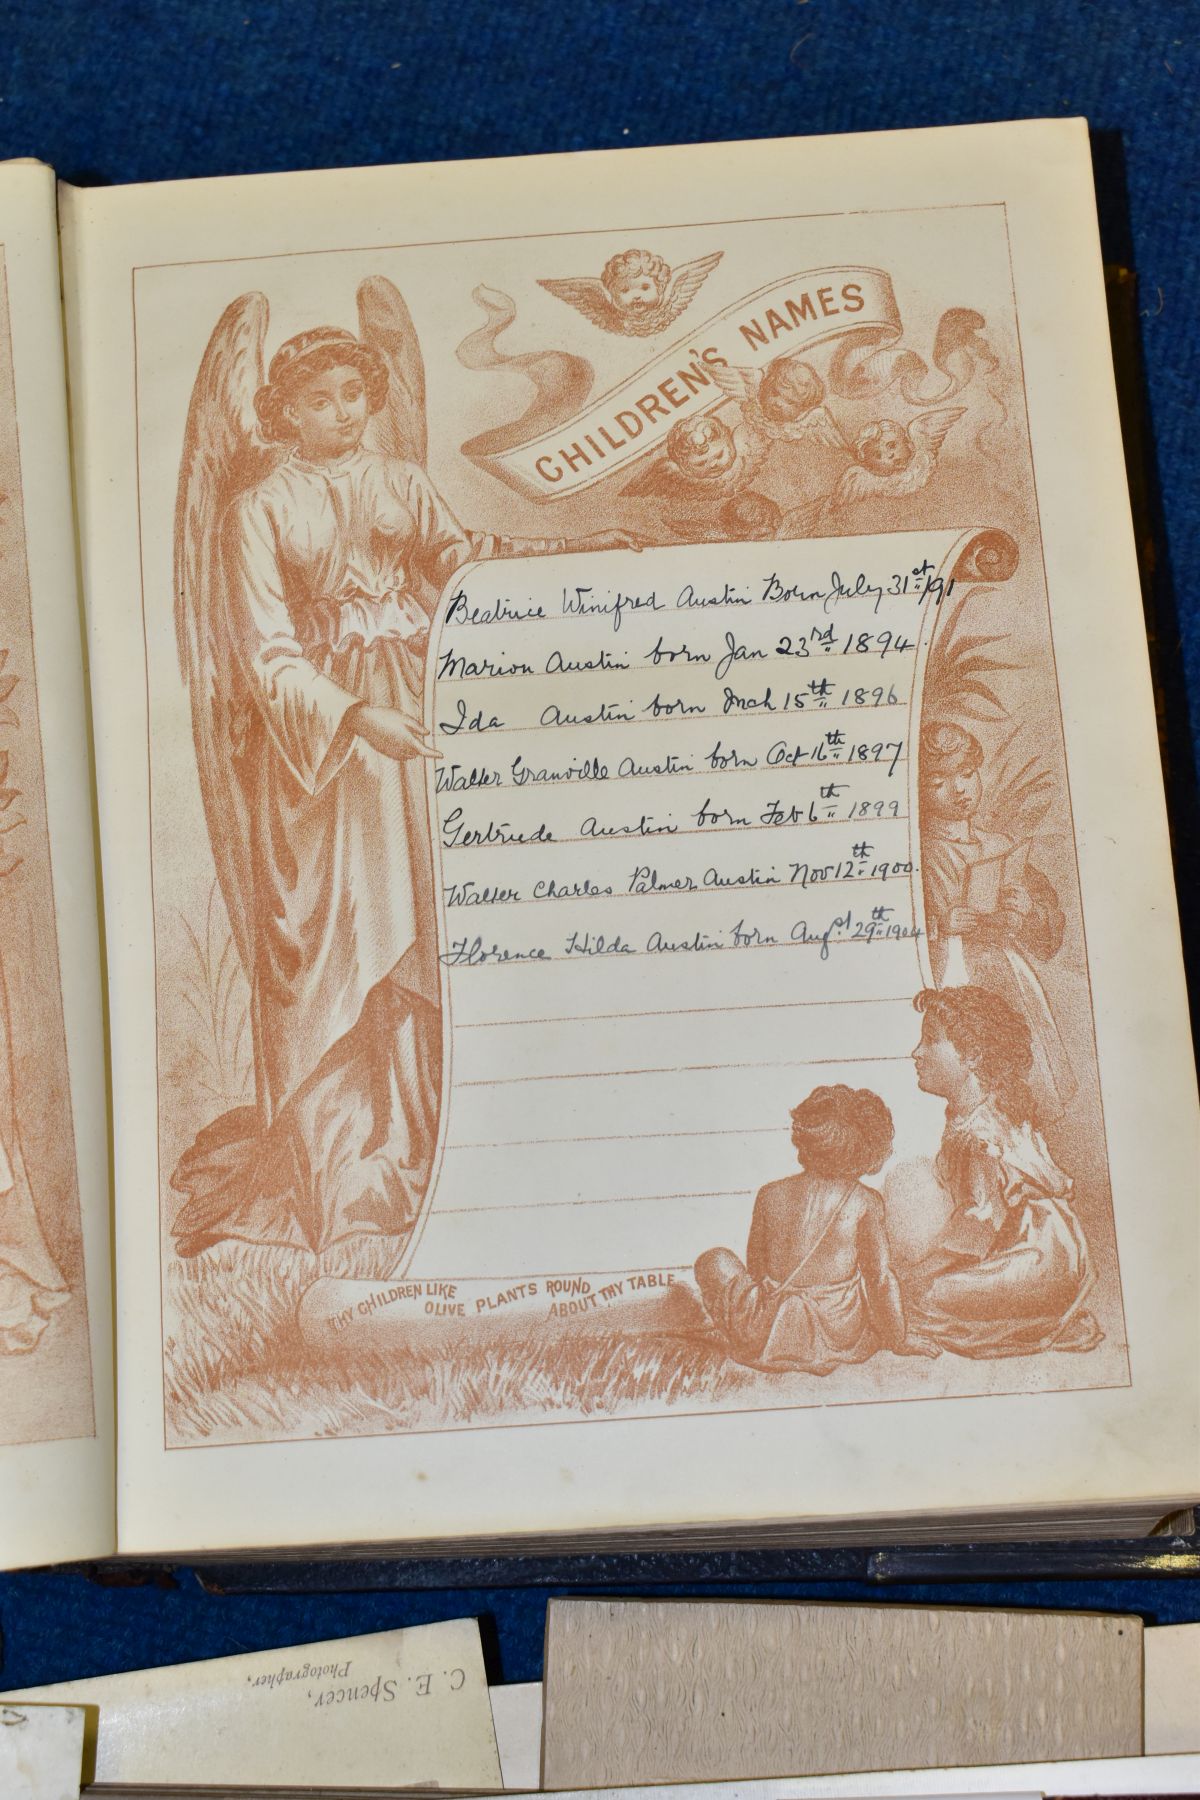 CHILDREN'S NAMES
Beatrice Winifred Austin Born July 31st 191
Marion Austin born Jan 23rd 1894.
Ida Austin born Mch 15th 1896
Walter Granville Austin born Oct 16th 1897
Gertrude Austin born Feb 6th 1899
Walter Charles Palmer Austin Nov 12th 1900.
Florence Hilda Austin born Augst 29th 1904
THY CHILDREN LIKE
OLIVE PLANTS ROUND
ABOUT THY TABLE
C. E. Spencer,
Photographer,